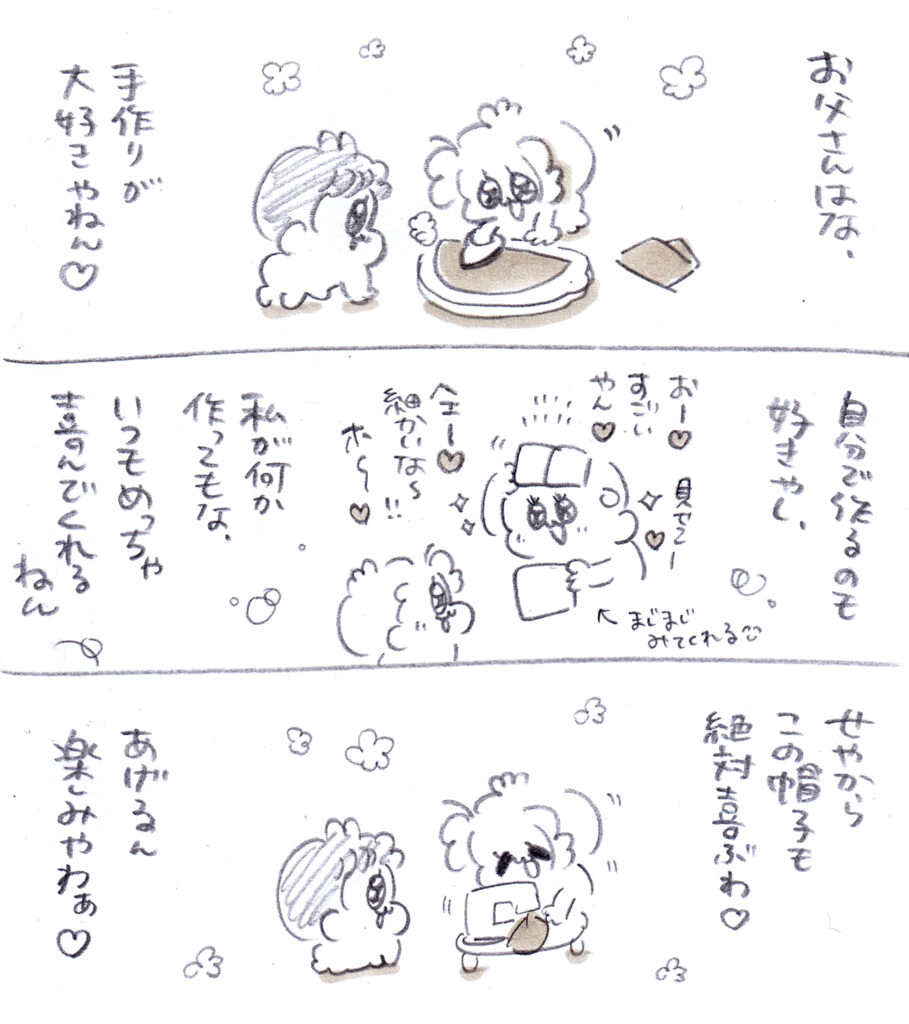 お父さんはな、
手作りが
大好きやねん♡
自分で作るのも
好きやし、
おー♥
すごい
やん♥
見せてー
全ー♥
細かいな〜!!
ホ〜♥
↖まじまじ
みてくれる
私が何か
作ってもな、
いつもめっちゃ
喜んでくれる
ねん
せやから
この帽子も
絶対喜ぶわ♡
あげるん
楽しみやわぁ♡